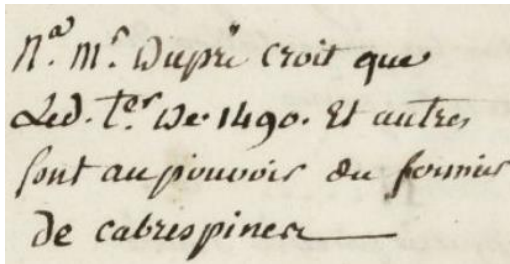 N.ª M.r Dupré croit que
Led. t.er De 1490. Et autres
sont au pouvoir du fermier
de cabrespines